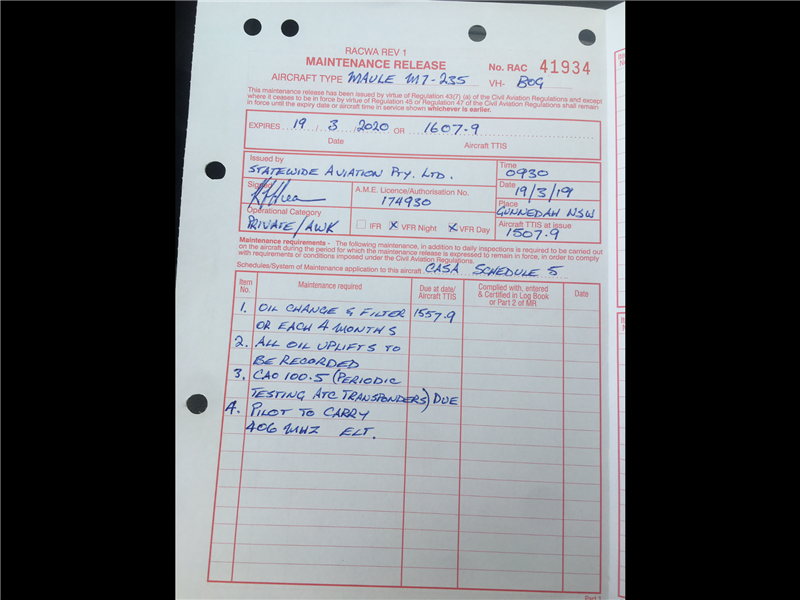 RACWA REV 1
MAINTENANCE RELEASE
No. RAC 41934
AIRCRAFT TYPE MAULE M7-235 VH- BOG
This maintenance release has been issued by virtue of Regulation 43(7) (a) of the Civil Aviation Regulations and except
where it ceases to be in force by virtue of Regulation 45 or Regulation 47 of the Civil Aviation Regulations shall remain
in force until the expiry date or aircraft time in service shown whichever is earlier.
EXPIRES 19 / 3 / 2020 OR 1607.9
Date Aircraft TTIS
Issued by
STATEWIDE AVIATION PTY. LTD.
Time
0930
Signed
A.M.E. Licence/Authorisation No.
174930
Date
19/3/19
Place
GUNNEDAH NSW
Operational Category
PRIVATE/AWK
IFR X VFR Night X VFR Day
Aircraft TTIS at issue
1507.9
Maintenance requirements - The following maintenance, in addition to daily inspections is required to be carried out
on the aircraft during the period for which the maintenance release is expressed to remain in force, in order to comply
with requirements or conditions imposed under the Civil Aviation Regulations.
Schedules/System of Maintenance application to this aircraft CASA SCHEDULE 5
Item No.
Maintenance required
Due at date/ Aircraft TTIS
Complied with, entered & Certified in Log Book or Part 2 of MR
Date
1. OIL CHANGE & FILTER 1557.9
OR EACH 4 MONTHS
2. ALL OIL UPLIFTS TO
BE RECORDED
3. CAO 100.5 (PERIODIC
TESTING ATC TRANSPONDERS) DUE
4. PILOT TO CARRY
406 MHZ ELT.
Part 1